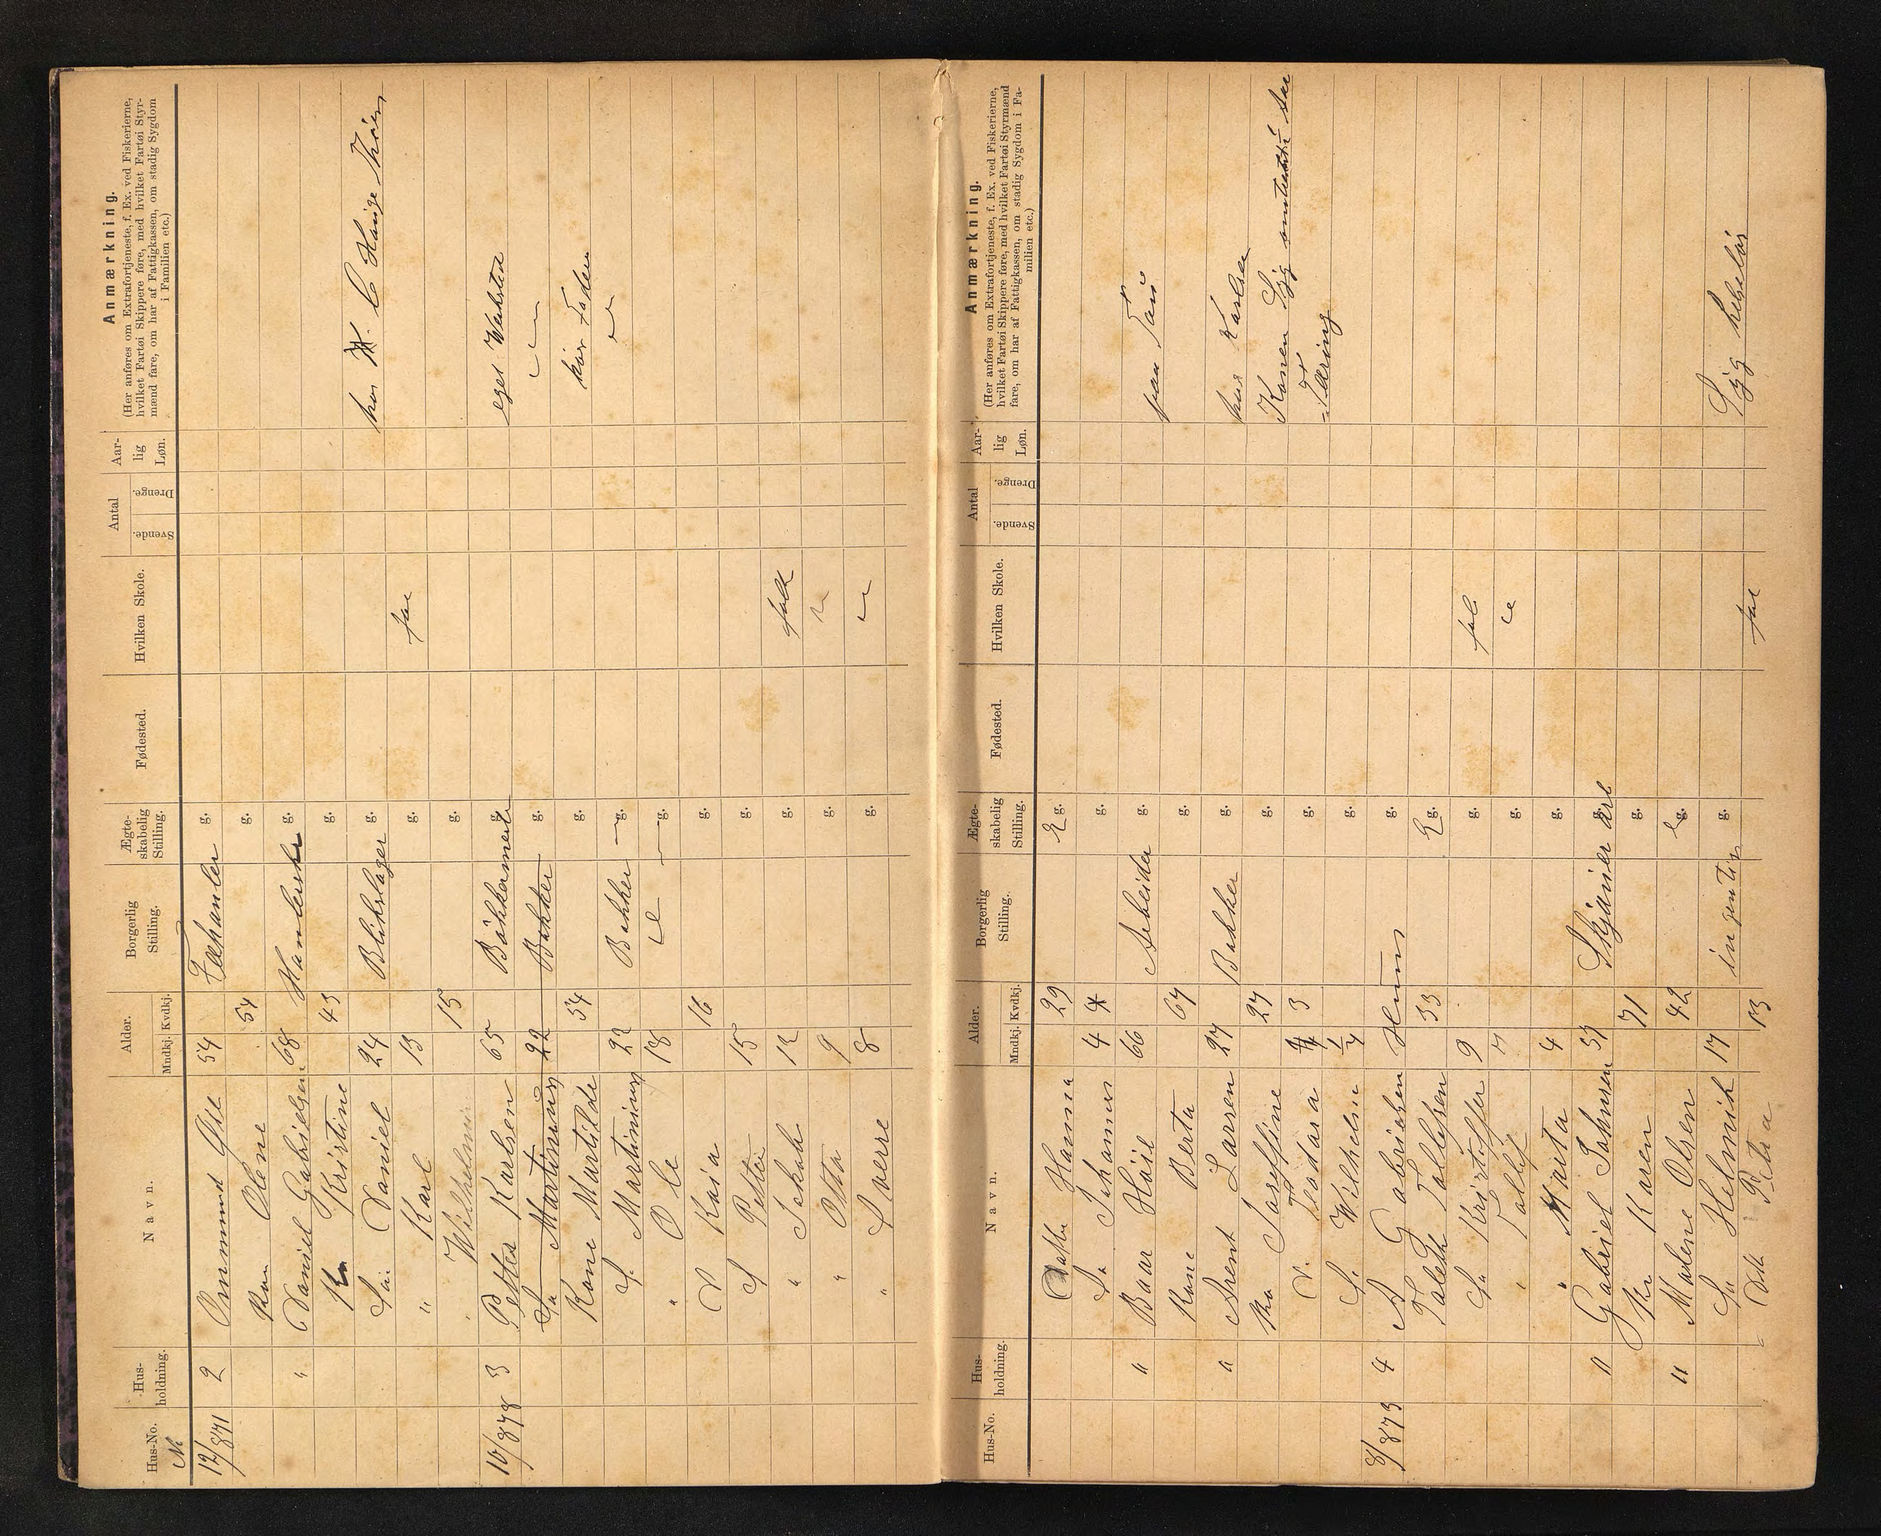 Hus-No. Hus-holdning. Navn. Alder. Mndkj. Kvdkj. Borgerlig Stilling. Ægte-skabelig Stilling. Fødested. Hvilken Skole. Antal Svende. Drenge. Aar-lig Løn. Anmærkning.
(Her anføres om Extrafortjeneste, f. Ex. ved Fiskerierne, hvilket Fartøi Skippere føre, med hvilket Fartøi Styr-mænd fare, om har af Fattigkassen, om stadig Sygdom i Familien etc.)
No
12/871 2 Ommund Øie 54 Fæhanler g.
Kon Olene 54 g.
" Daniel Gabrielsen 68 Hanlerskr g.
Ko Kristine 43 g.
Sa. Daniel 24 Blikslager g. hos C Hauge
" Karl 13 g. fol
Wilhelmi 15 g.
10/878 3 Petter Karlsen 65 Bökkermeste g. eget Werksted
Sa Martinius 22 Bøkker g. "
Kone Martilde 54 g. hos Faden
S. Martinius 22 Bøkker g. "
" Ole 18 " g.
D Kaia 16 g.
S Petter 15 g.
" Jakob 12 g. folk
" Otto 9 g. "
" Sverre 8 g. "
Hus-No. Hus-holdning. Navn. Alder. Mndkj. Kvdkj. Borgerlig Stilling. Ægte-skabelig Stilling. Fødested. Hvilken Skole. Antal Svende. Drenge. Aar-lig Løn. Anmærkning.
(Her anføres om Extrafortjeneste, f. Ex. ved Fiskerierne, hvilket Fartøi Skippere føre, med hvilket Fartøi Styrmænd fare, om har af Fattigkassen, om stadig Sygdom i Fa-milien etc.)
Datte Hanna 29 E g.
Sa Johannes 4 4 g.
" Baar Höie 66 Arbeider g. paa Tau
Kone Berta 67 g.
" Arent Larsen 27 Bøkker g. hos Karlsen
Ko Joseffine 27 g. Konen Syg Aar
D. Teodora 3 g. - Tæring
S. Wilhelm 1/4 g.
8/873 4 A Gabrielsen Huus g.
Taleth Tollefsen 33 E g.
Sa Kristoffer 9 g. fol
" Tollef 7 g. "
" Marta 4 g.
" Gabriel Johnsen 57 Skjøner are g.
Ko Karen 71 g.
" Malene Olsen 42 E g.
Sa Helmik 17 ingenting g. Syg helselös
Dtt Petra 13 fol